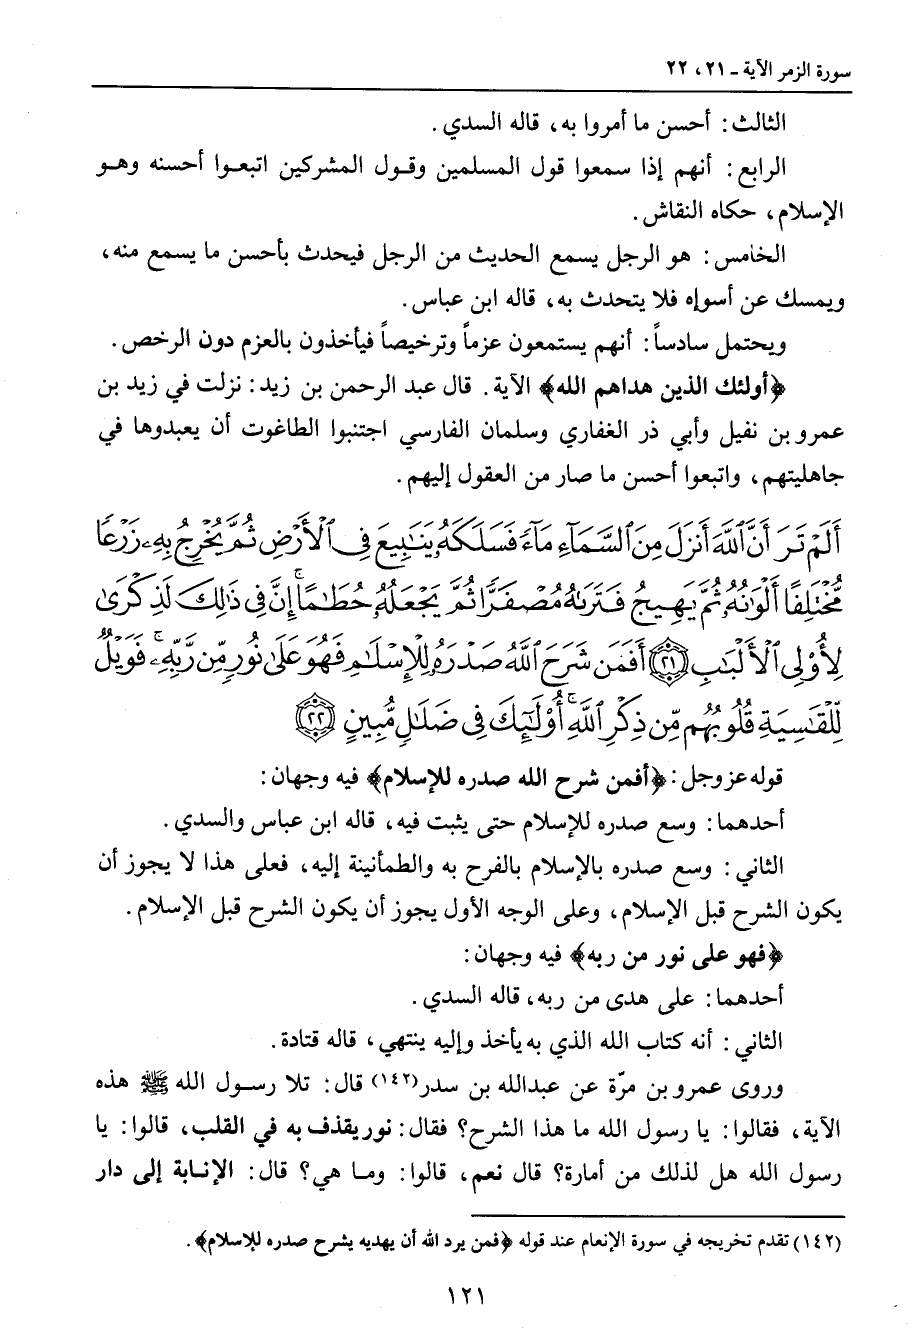 سورة الزمر الآية ـ ٢١، ٢٢
الثالث: أحسن ما أمروا به، قاله السدي.
الرابع: أنهم إذا سمعوا قول المسلمين وقول المشركين اتبعوا أحسنه وهو
الإسلام، حكاه النقاش.
الخامس: هو الرجل يسمع الحديث من الرجل فيحدث بأحسن ما يسمع منه،
ويمسك عن أسوإه فلا يتحدث به، قاله ابن عباس.
ويحتمل سادساً: أنهم يستمعون عزماً وترخيصاً فيأخذون بالعزم دون الرخص.
﴿أولئك الذين هداهم الله﴾ الآية. قال عبد الرحمن بن زيد: نزلت في زيد بن
عمرو بن نفيل وأبي ذر الغفاري وسلمان الفارسي اجتنبوا الطاغوت أن يعبدوها في
جاهليتهم، واتبعوا أحسن ما صار من العقول إليهم.
أَلَمْ تَرَ أَنَّ ٱللَّهَ أَنزَلَ مِنَ ٱلسَّمَآءِ مَآءً فَسَلَكَهُۥ يَنَٰبِيعَ فِى ٱلْأَرْضِ ثُمَّ يُخْرِجُ بِهِۦ زَرْعًا
مُّخْتَلِفًا أَلْوَٰنُهُۥ ثُمَّ يَهِيجُ فَتَرَىٰهُ مُصْفَرًّا ثُمَّ يَجْعَلُهُۥ حُطَٰمًا ۚ إِنَّ فِى ذَٰلِكَ لَذِكْرَىٰ
لِأُو۟لِى ٱلْأَلْبَٰبِ ﴿٢١﴾ أَفَمَن شَرَحَ ٱللَّهُ صَدْرَهُۥ لِلْإِسْلَٰمِ فَهُوَ عَلَىٰ نُورٍ مِّن رَّبِّهِۦ ۚ فَوَيْلٌ
لِّلْقَٰسِيَةِ قُلُوبُهُم مِّن ذِكْرِ ٱللَّهِ ۚ أُو۟لَٰٓئِكَ فِى ضَلَٰلٍ مُّبِينٍ ﴿٢٢﴾
قوله عز وجل: ﴿أفمن شرح الله صدره للإسلام﴾ فيه وجهان:
أحدهما: وسع صدره للإسلام حتى يثبت فيه، قاله ابن عباس والسدي.
الثاني: وسع صدره بالإسلام بالفرح به والطمأنينة إليه، فعلى هذا لا يجوز أن
يكون الشرح قبل الإسلام، وعلى الوجه الأول يجوز أن يكون الشرح قبل الإسلام.
﴿فهو على نور من ربه﴾ فيه وجهان:
أحدهما: على هدى من ربه، قاله السدي.
الثاني: أنه كتاب الله الذي به يأخذ وإليه ينتهي، قاله قتادة.
وروى عمرو بن مرّة عن عبدالله بن سدر(١٤٢) قال: تلا رسول الله ﷺ هذه
الآية، فقالوا: يا رسول الله ما هذا الشرح؟ فقال: نور يقذف به في القلب، قالوا: يا
رسول الله هل لذلك من أمارة؟ قال نعم، قالوا: وما هي؟ قال: الإنابة إلى دار
(١٤٢) تقدم تخريجه في سورة الإنعام عند قوله ﴿فمن يرد الله أن يهديه يشرح صدره للإسلام﴾.
١٢١